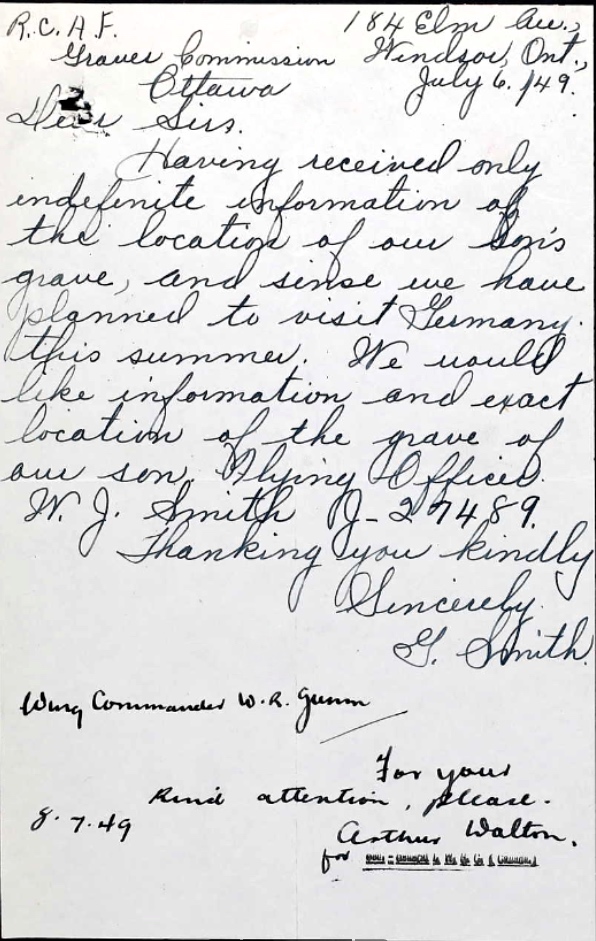 R.C.A.F. 184 Elm Ave.,
Graves Commission Windsor, Ont.,
Ottawa July 6. /49.
Dear Sirs.
Having received only
indefinite information of
the location of our son's
grave, and sinse we have
planned to visit Germany.
this summer. We would
like information and exact
location of the grave of
our son. Flying Officer.
W. J. Smith J-27489.
Thanking you kindly
Sincerely.
G. Smith.
Wing Commander W.R. Gunn
For your
kind attention, please.
8.7.49
Arthur Walton.
for